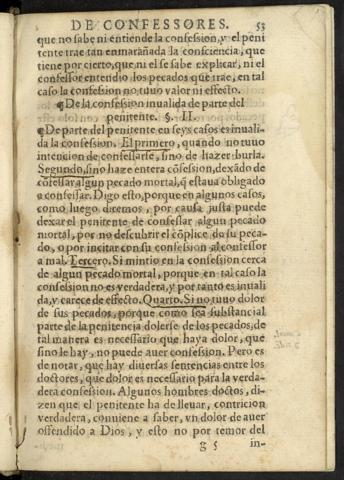 DE CONFESSORES. 53
que no sabe ni entiende la confession, y el peni
tente trae tan enmarañada la consciencia, que
tiene por cierto, que ni el se sabe explicar, ni el
confessor entendio los pecados que trae, en tal
caso la confession no tuuo valor ni effecto.
¶ De la confession inualida de parte del
penitente. §. II.
¶ De parte del penitente en seys casos es inuali-
da la confession. El primero, quando no tuuo
intencion de confessarse, sino de hazer burla.
Segundo, sino haze entera cõfession, dexãdo de
cõfessar algun pecado mortal, q̃ estaua obligado
a confessar. Digo esto, porque en algunos casos,
como luego diremos, por causa justa puede
dexar el penitente de confessar algun pecado
mortal, por no descubrir el cõplice de su peca-
do, o por incitar con su confession al confessor
a mal. Tercero. Si mintio en la confession cerca
de algun pecado mortal, porque en tal caso la
confession no es verdadera, y por tanto es inuali
da, y carece de effecto. Quarto. Si no tuuo dolor
de sus pecados, porque como sea substancial
parte de la penitencia dolerse de los pecados, de
tal manera es necessario que haya dolor, que
sino le hay, no puede auer confession. Pero es
de notar, que hay diuersas sentencias entre los
doctores, que dolor es necessario para la verda-
dera confession. Algunos hombres doctos, di-
zen que el penitente ha de lleuar, contricion
verdadera, conuiene a saber, vn dolor de auer
offendido a Dios, y esto no por temor del
g 5 in-